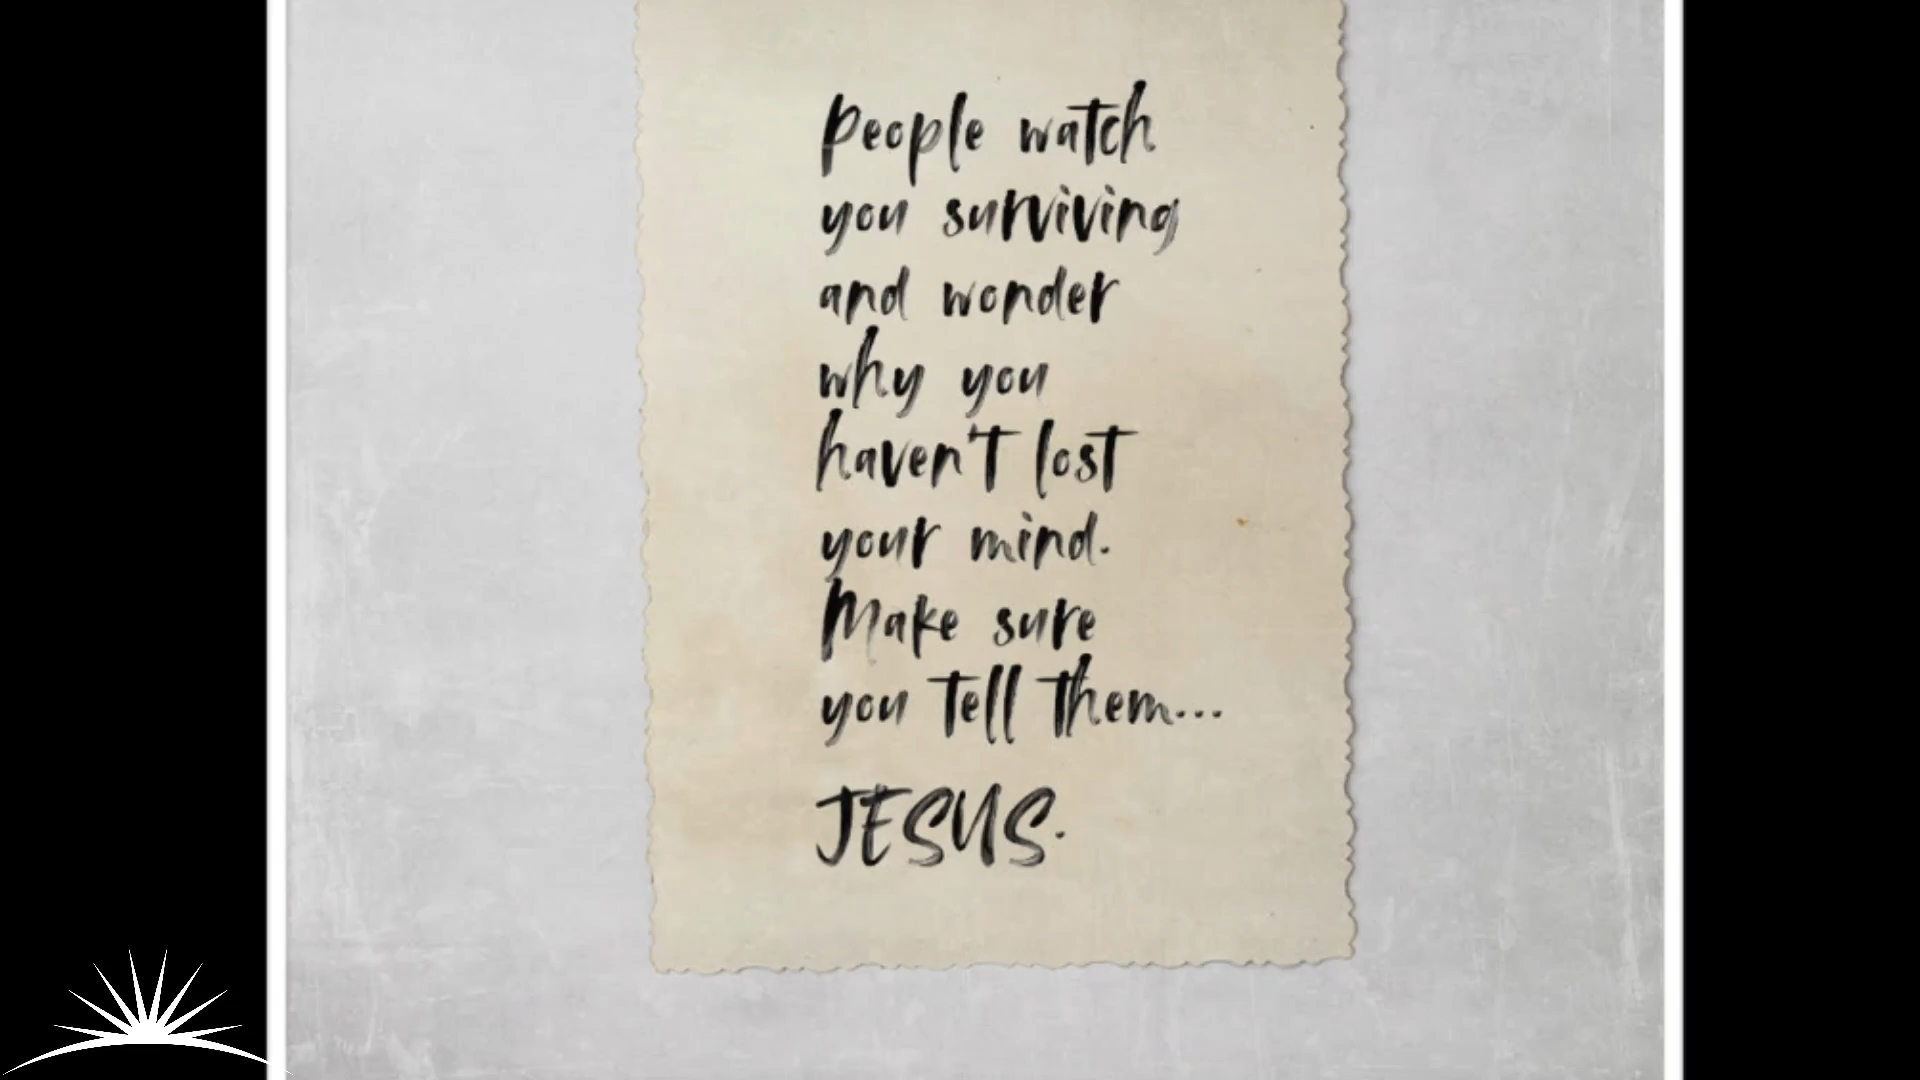 People watch
you surviving
and wonder
why you
haven't lost
your mind.
Make sure
you tell them...
JESUS.